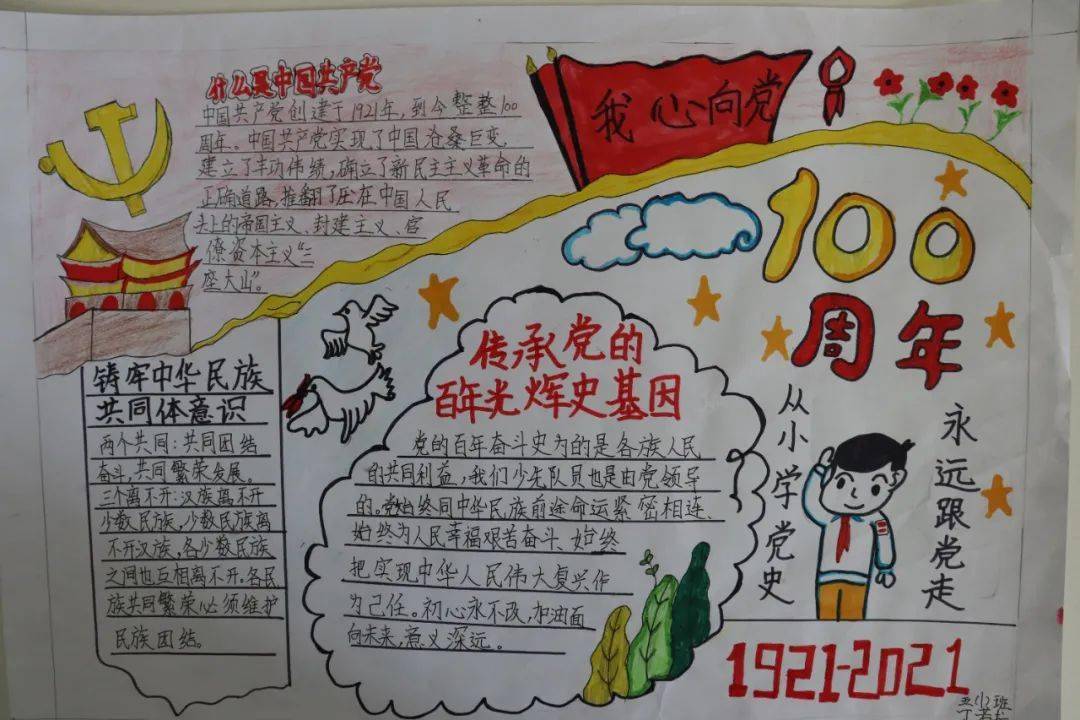 什么是中国共产党
中国共产党创建于1921年,到今整整100
周年。中国共产党实现了中国沧桑巨变
建立了丰功伟绩,确立了新民主主义革命的
正确道路,推翻了压在中国人民
头上的帝国主义、封建主义、官
僚资本主义“三
座大山”。
我心向党
100
周年
铸牢中华民族
共同体意识
两个共同:共同团结
奋斗,共同繁荣发展。
三个离不开:汉族离不开
少数民族,少数民族离
不开汉族,各少数民族
之间也互相离不开.各民
族共同繁荣必须维护
民族团结。
传承党的
百年光辉史基因
党的百年奋斗史为的是各族人民
的共同利益,我们少先队员也是由党领导
的。党始终同中华民族前途命运紧密相连、
始终为人民幸福艰苦奋斗、始终
把实现中华人民伟大复兴作
为己任。初心永不改,加油面
向未来,意义深远。
从小学党史
永远跟党走
1921-2021